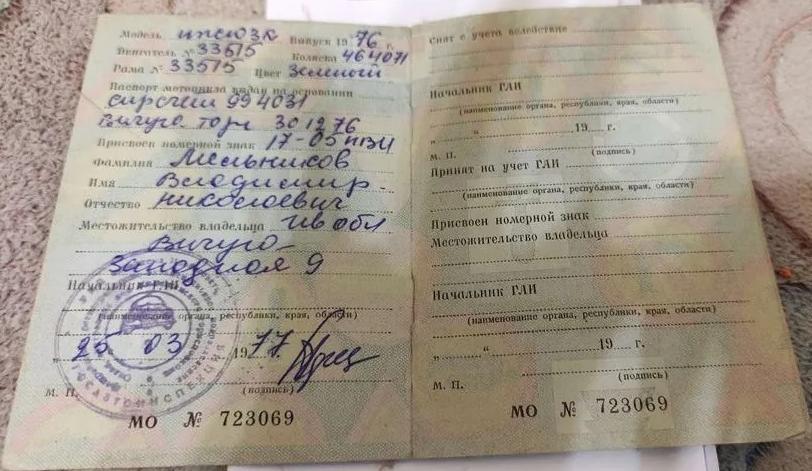 Модель ижюзк Выпуск 1976 г.
Двигатель № 33515 Коляска 464071
Рама № 33515 Цвет зеленый
Паспорт мотоцикла выдан на основании
994031
Вичуга торг 30 12 76
Присвоен номерной знак 17-05
Фамилия Мельников
Имя Владимир
Отчество Николаевич
Местожительство владельца Ив обл
Вичуга
Западная 9
Начальник ГАИ
(наименование органа, республики, края, области)
25 03 1977
М. П. (подпись)
МО № 723069
Снят с учета вследствие
Начальник ГАИ
(наименование органа, республики, края, области)
„ “ 19 г.
М. П. (подпись)
Принят на учет ГАИ
(наименование органа, республики, края, области)
Присвоен номерной знак
Местожительство владельца
Начальник ГАИ
(наименование органа, республики, края, области)
„ “ 19 г.
М. П. (подпись)
МО № 723069